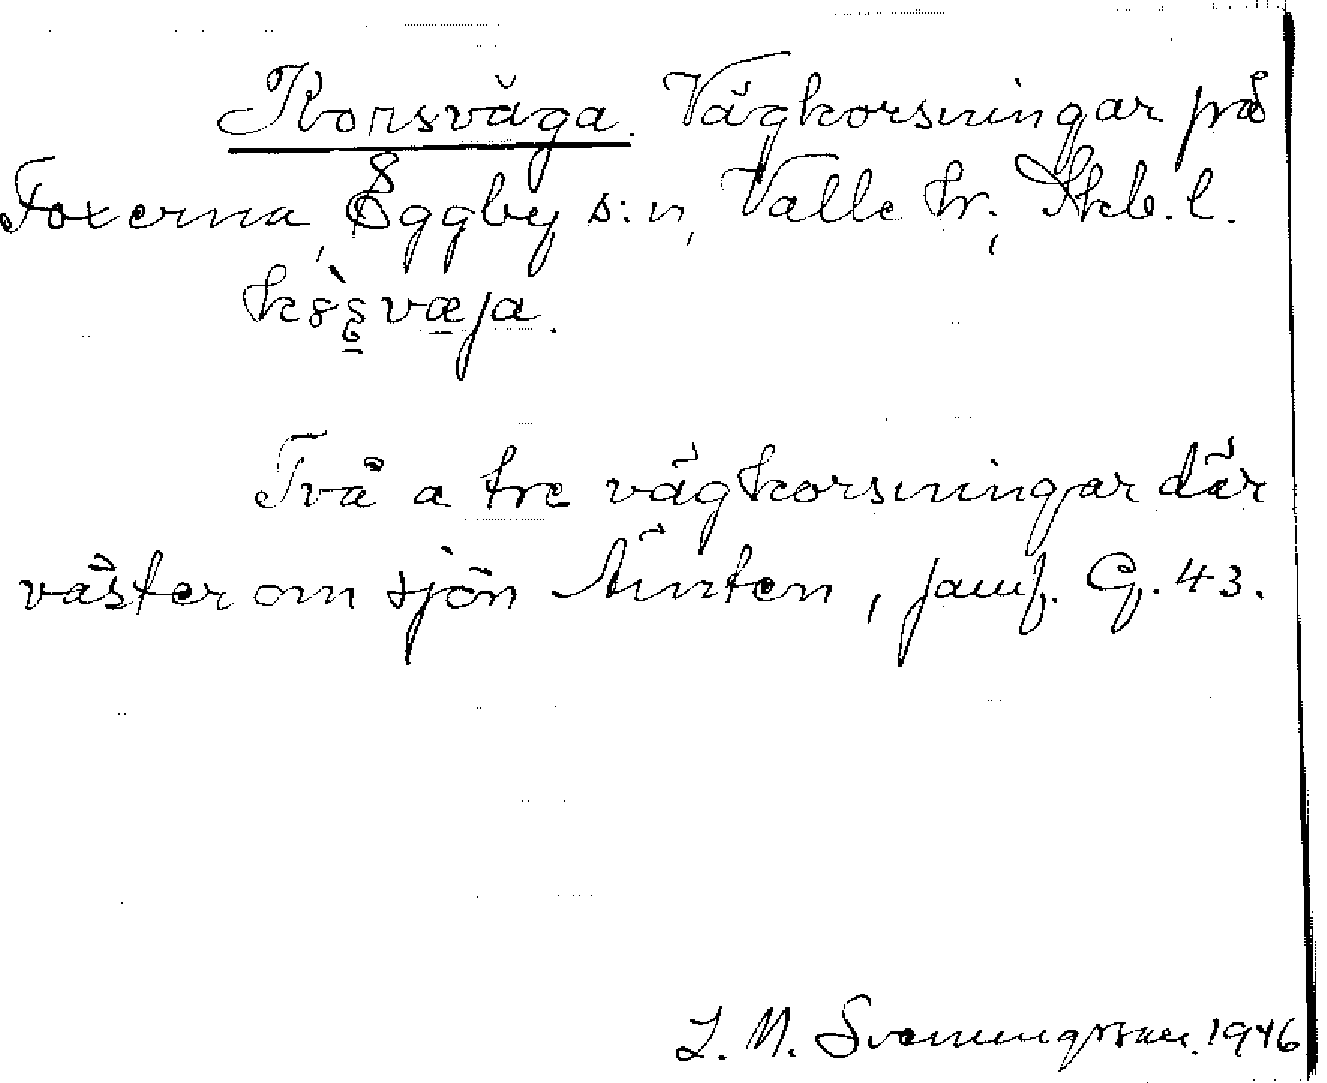 Korsväga. Vägkorsningar på
Foxerna, Eggby s:n, Valle hr., Skb. l.
Två a tre vägkorsningar där
väster om sjön Ämten, jämf. G. 43.
L. M. Svenningsson. 1946